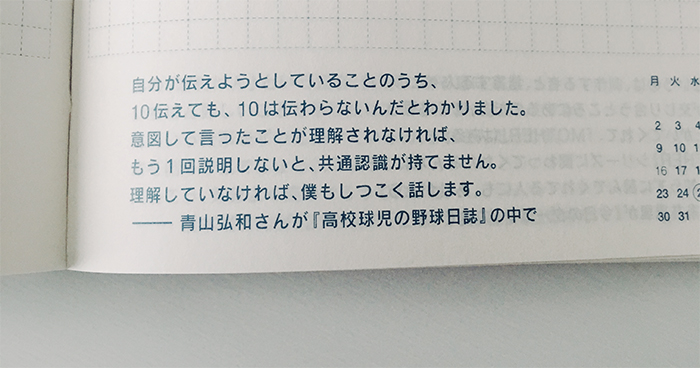 自分が伝えようとしていることのうち、
10伝えても、10は伝わらないんだとわかりました。
意図して言ったことが理解されなければ、
もう1回説明しないと、共通認識が持てません。
理解していなければ、僕もしつこく話します。
―― 青山弘和さんが『高校球児の野球日誌』の中で
月 火 水
2 3 4
9 10 11
16 17
23 24
30 31